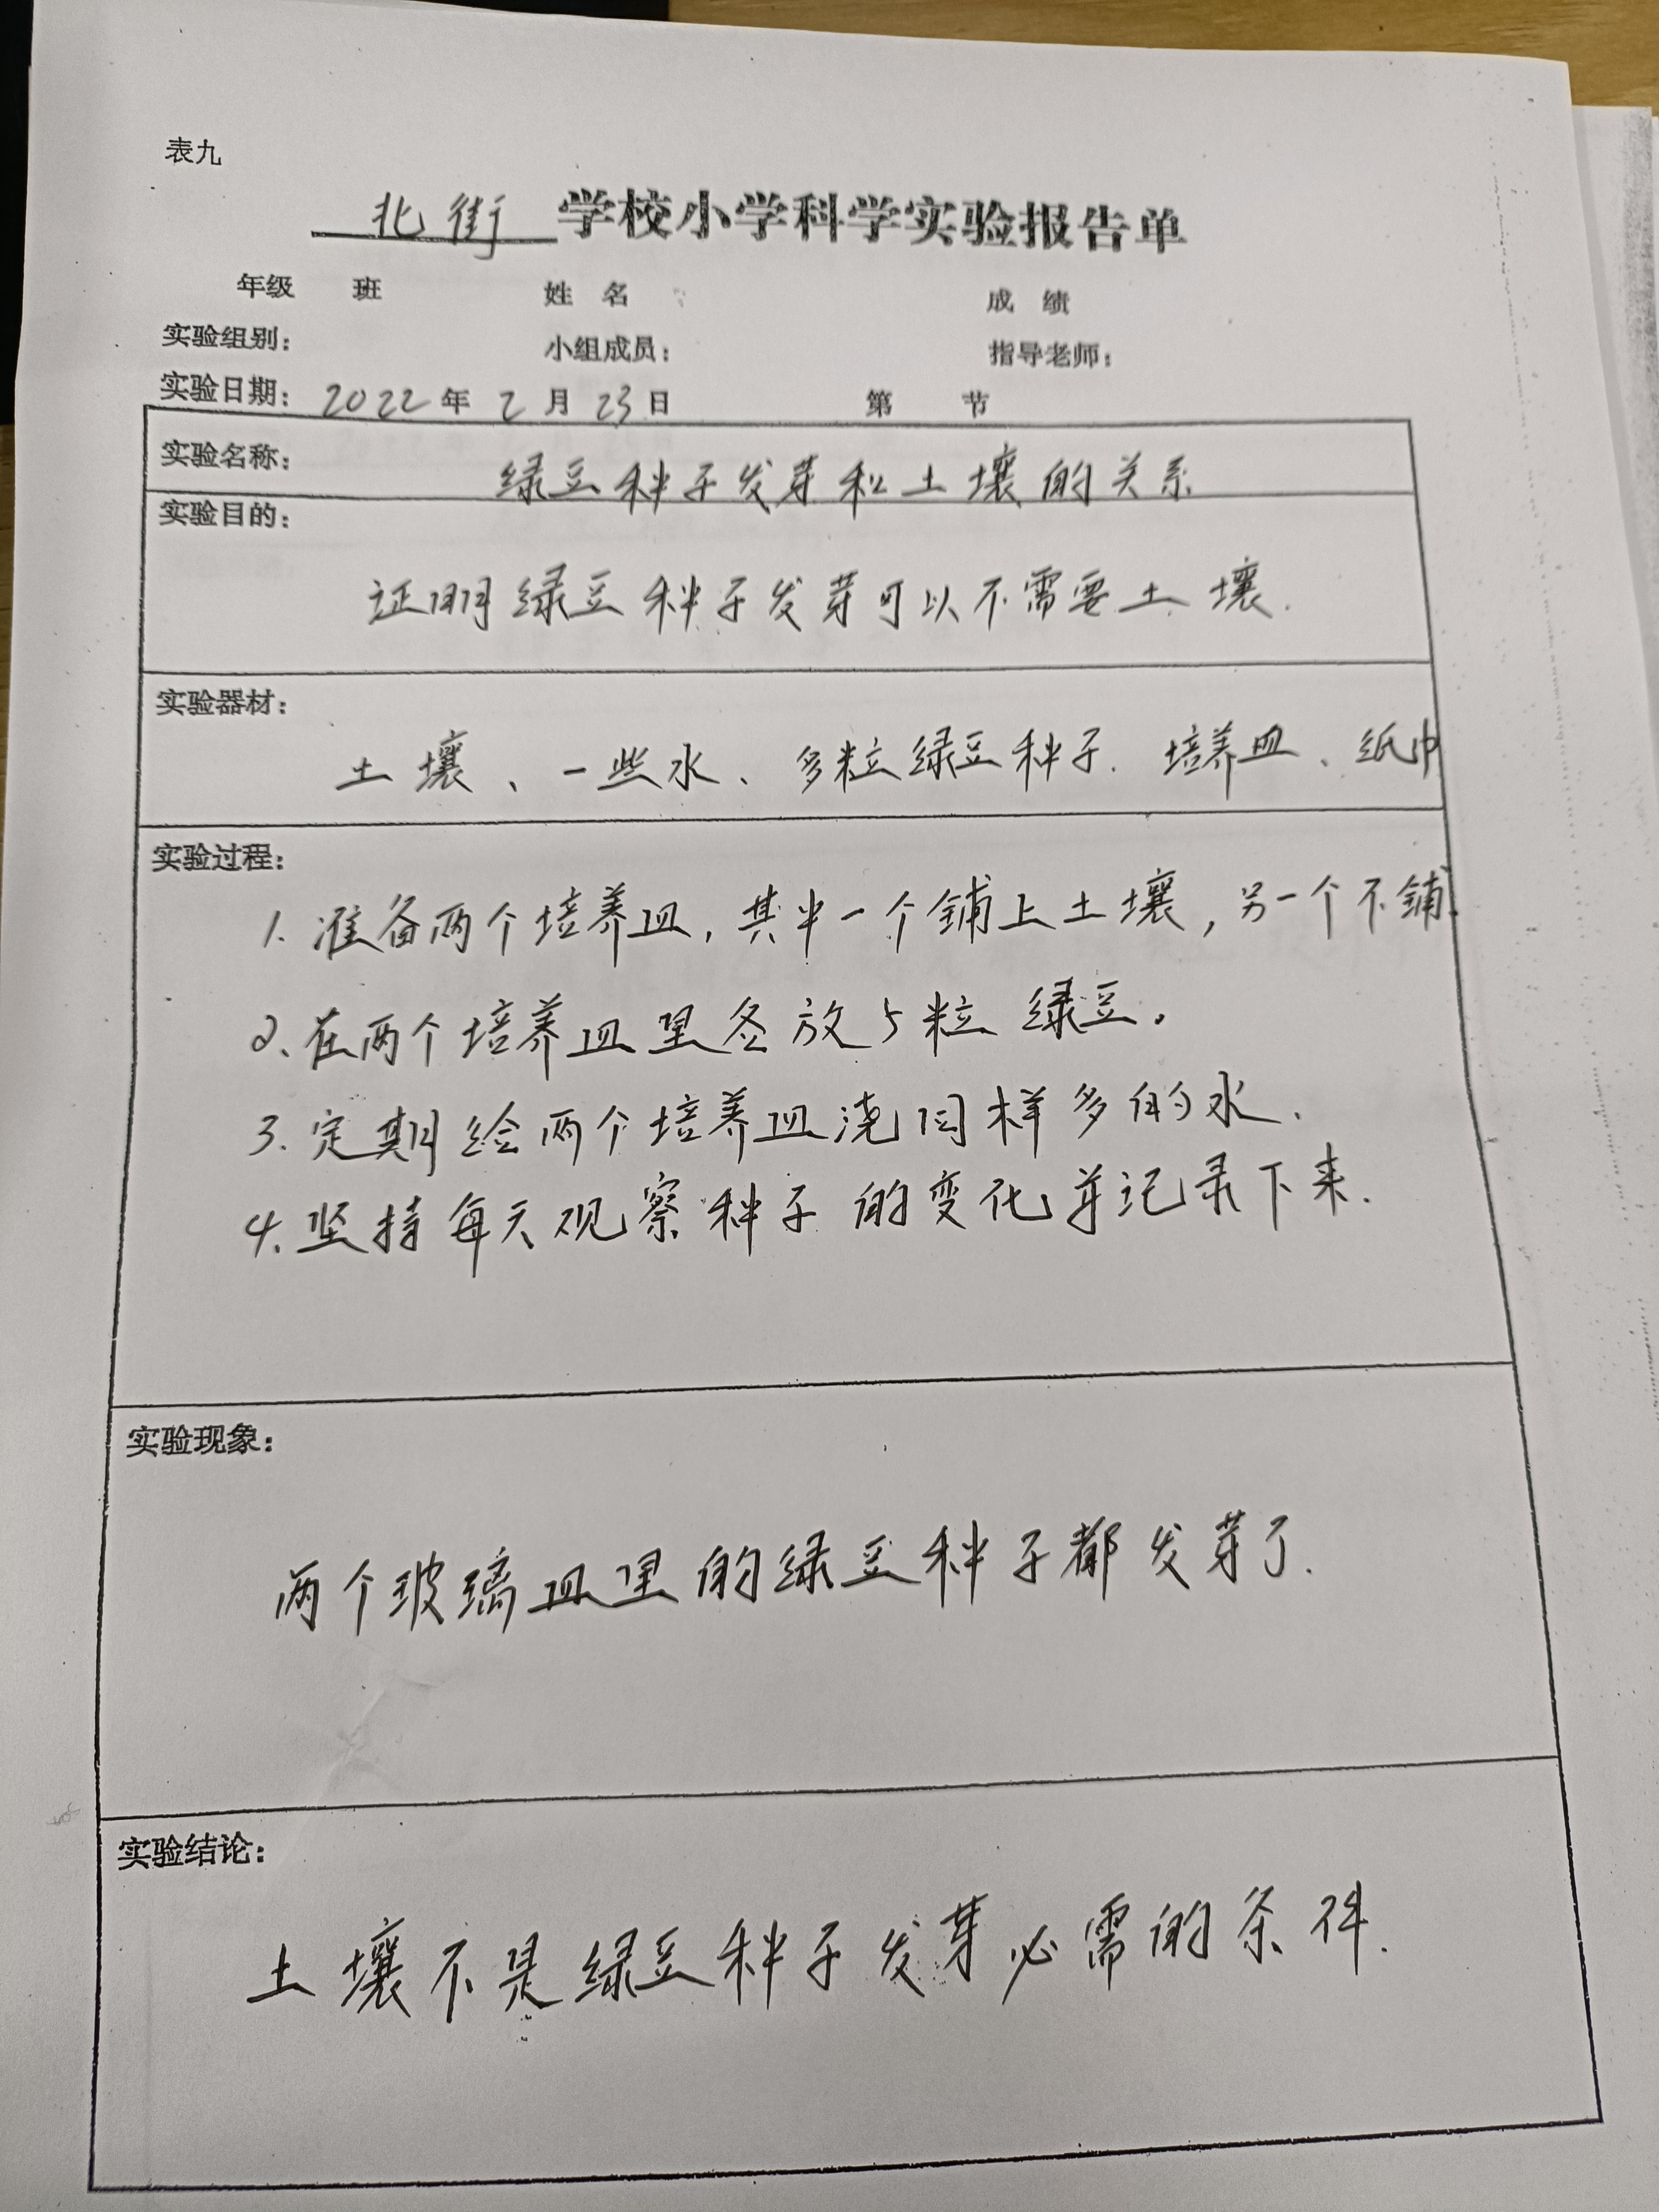 表九
北街学校小学科学实验报告单
年级 班 姓名 成绩
实验组别: 小组成员: 指导老师:
实验日期: 2022年2月23日 第 节
实验名称: 绿豆种子发芽和土壤的关系
实验目的:
证明绿豆种子发芽可以不需要土壤.
实验器材:
土壤、一些水、多粒绿豆种子.培养皿、纸巾
实验过程:
1.准备两个培养皿,其中一个铺上土壤,另一个不铺.
2.在两个培养皿里各放5粒绿豆。
3.定期给两个培养皿浇同样多的水.
4.坚持每天观察种子的变化并记录下来.
实验现象:
两个玻璃皿里的绿豆种子都发芽了.
实验结论:
土壤不是绿豆种子发芽必需的条件.